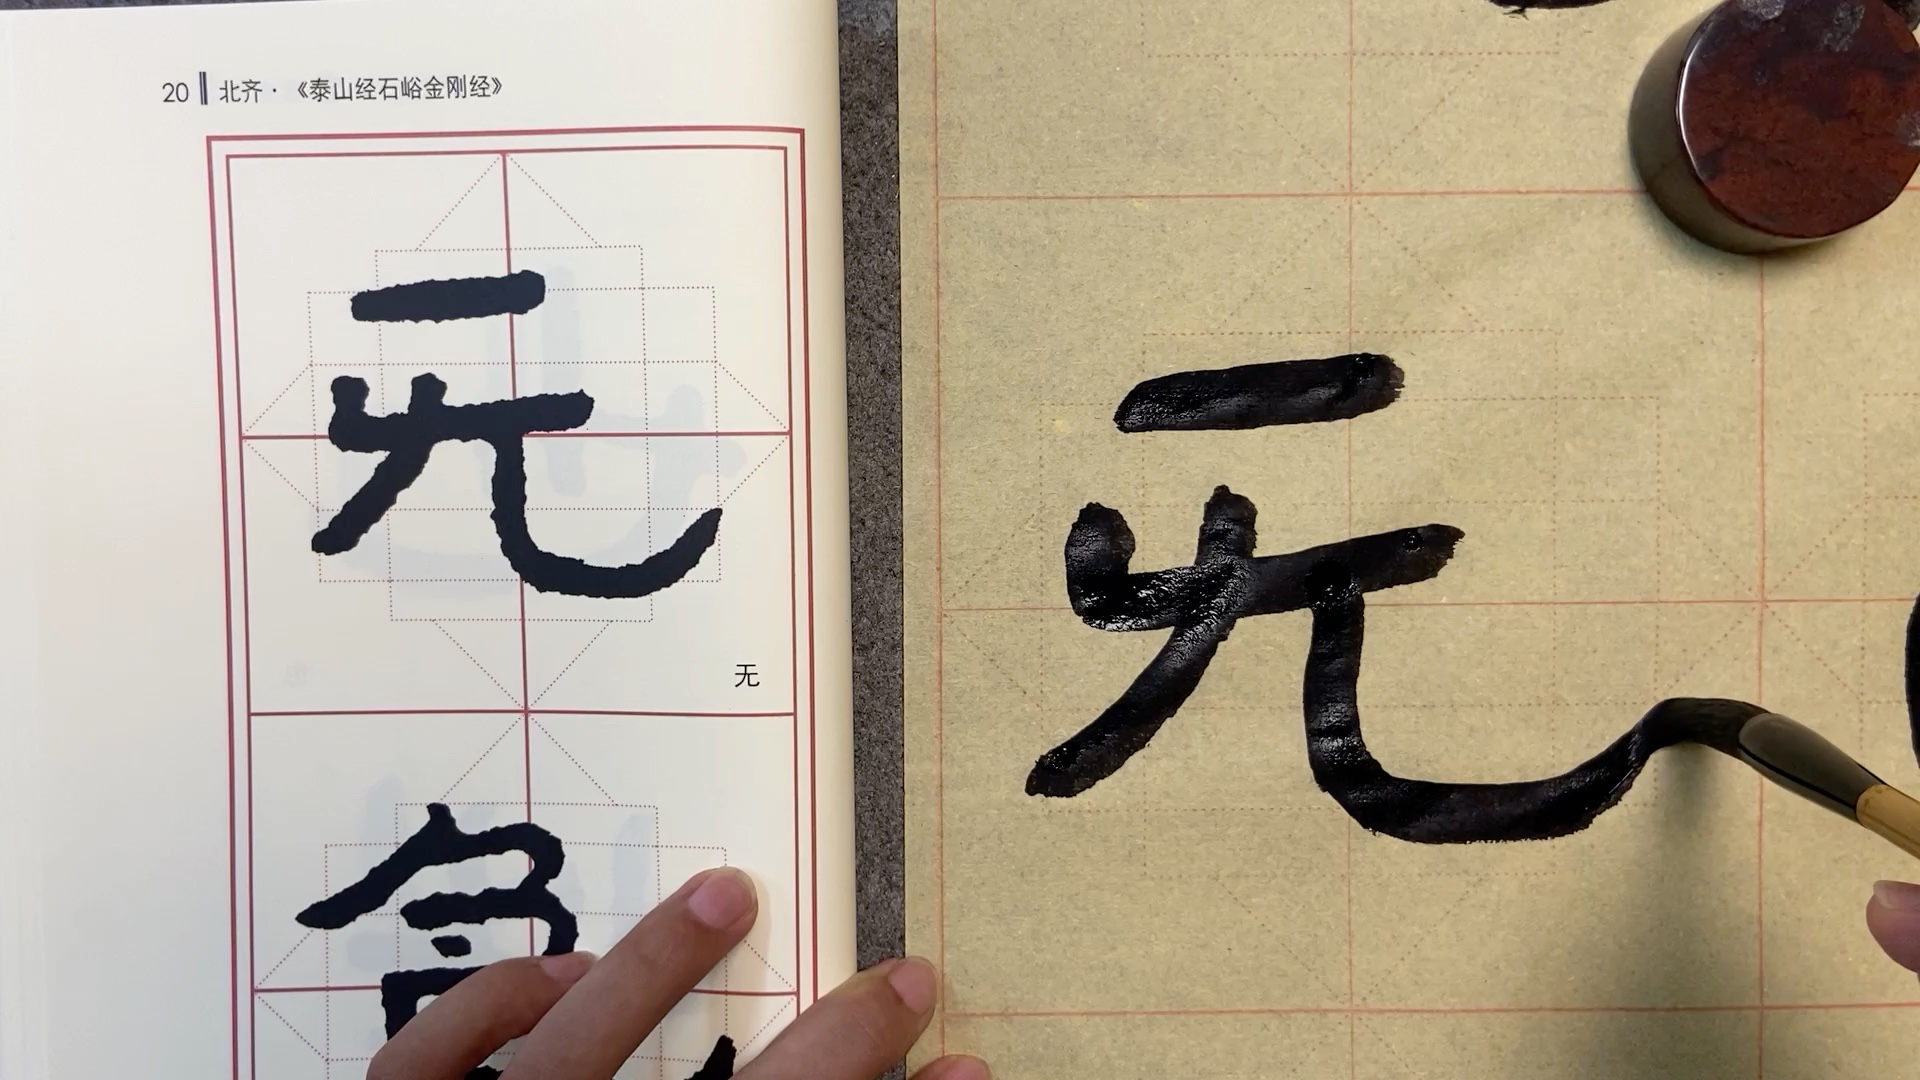 20 北齐·《泰山经石峪金刚经》
无
无
无